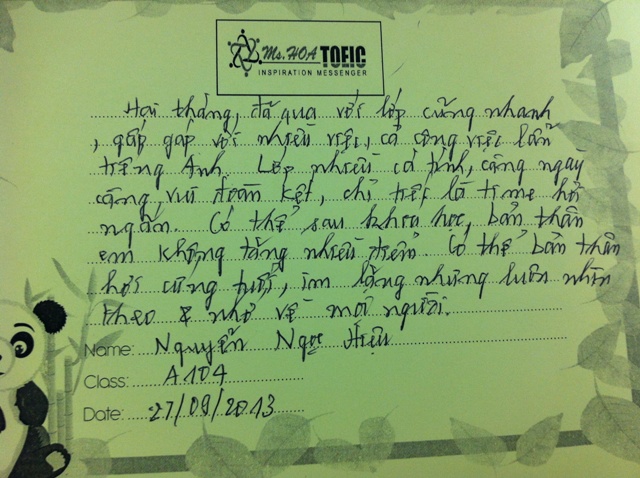 Ms. HOA TOEIC
INSPIRATION MESSENGER
Hai tháng, đã qua với lớp cũng nhanh
, gấp gáp với nhiều việc, cả công việc lẫn
tiếng Anh. Lớp nhiều cá tính, càng ngày
càng vui đoàn kết, chỉ tiếc là time hơi
ngắn. Có thể sau khóa học, bản thân
em không tăng nhiều điểm. Có thể bản thân
hơi cứng tuổi, im lặng nhưng luôn nhìn
theo & nhớ về mọi người.
Name: Nguyễn Ngọc Hiệu
Class: A104
Date: 27/09/2013